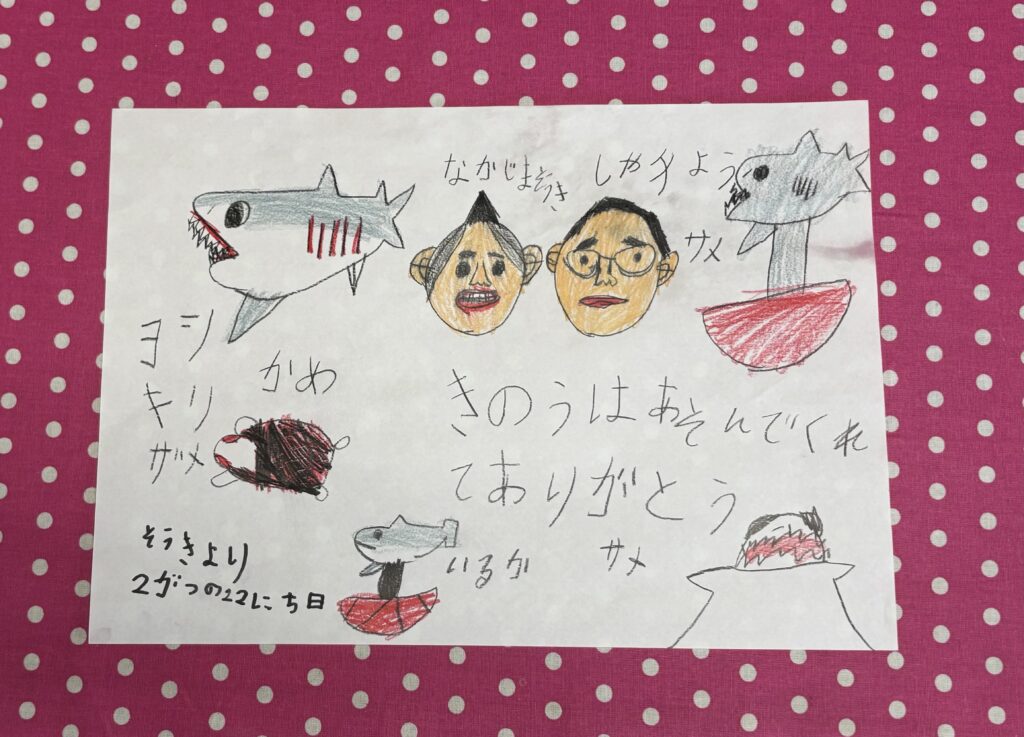 ながじまそうき
しゃちょう
サメ
ヨシ
キリ
ザメ
かめ
きのうはあそんでくれ
てありがとう
そうきより
2がつの22にち日
いるか
サメ